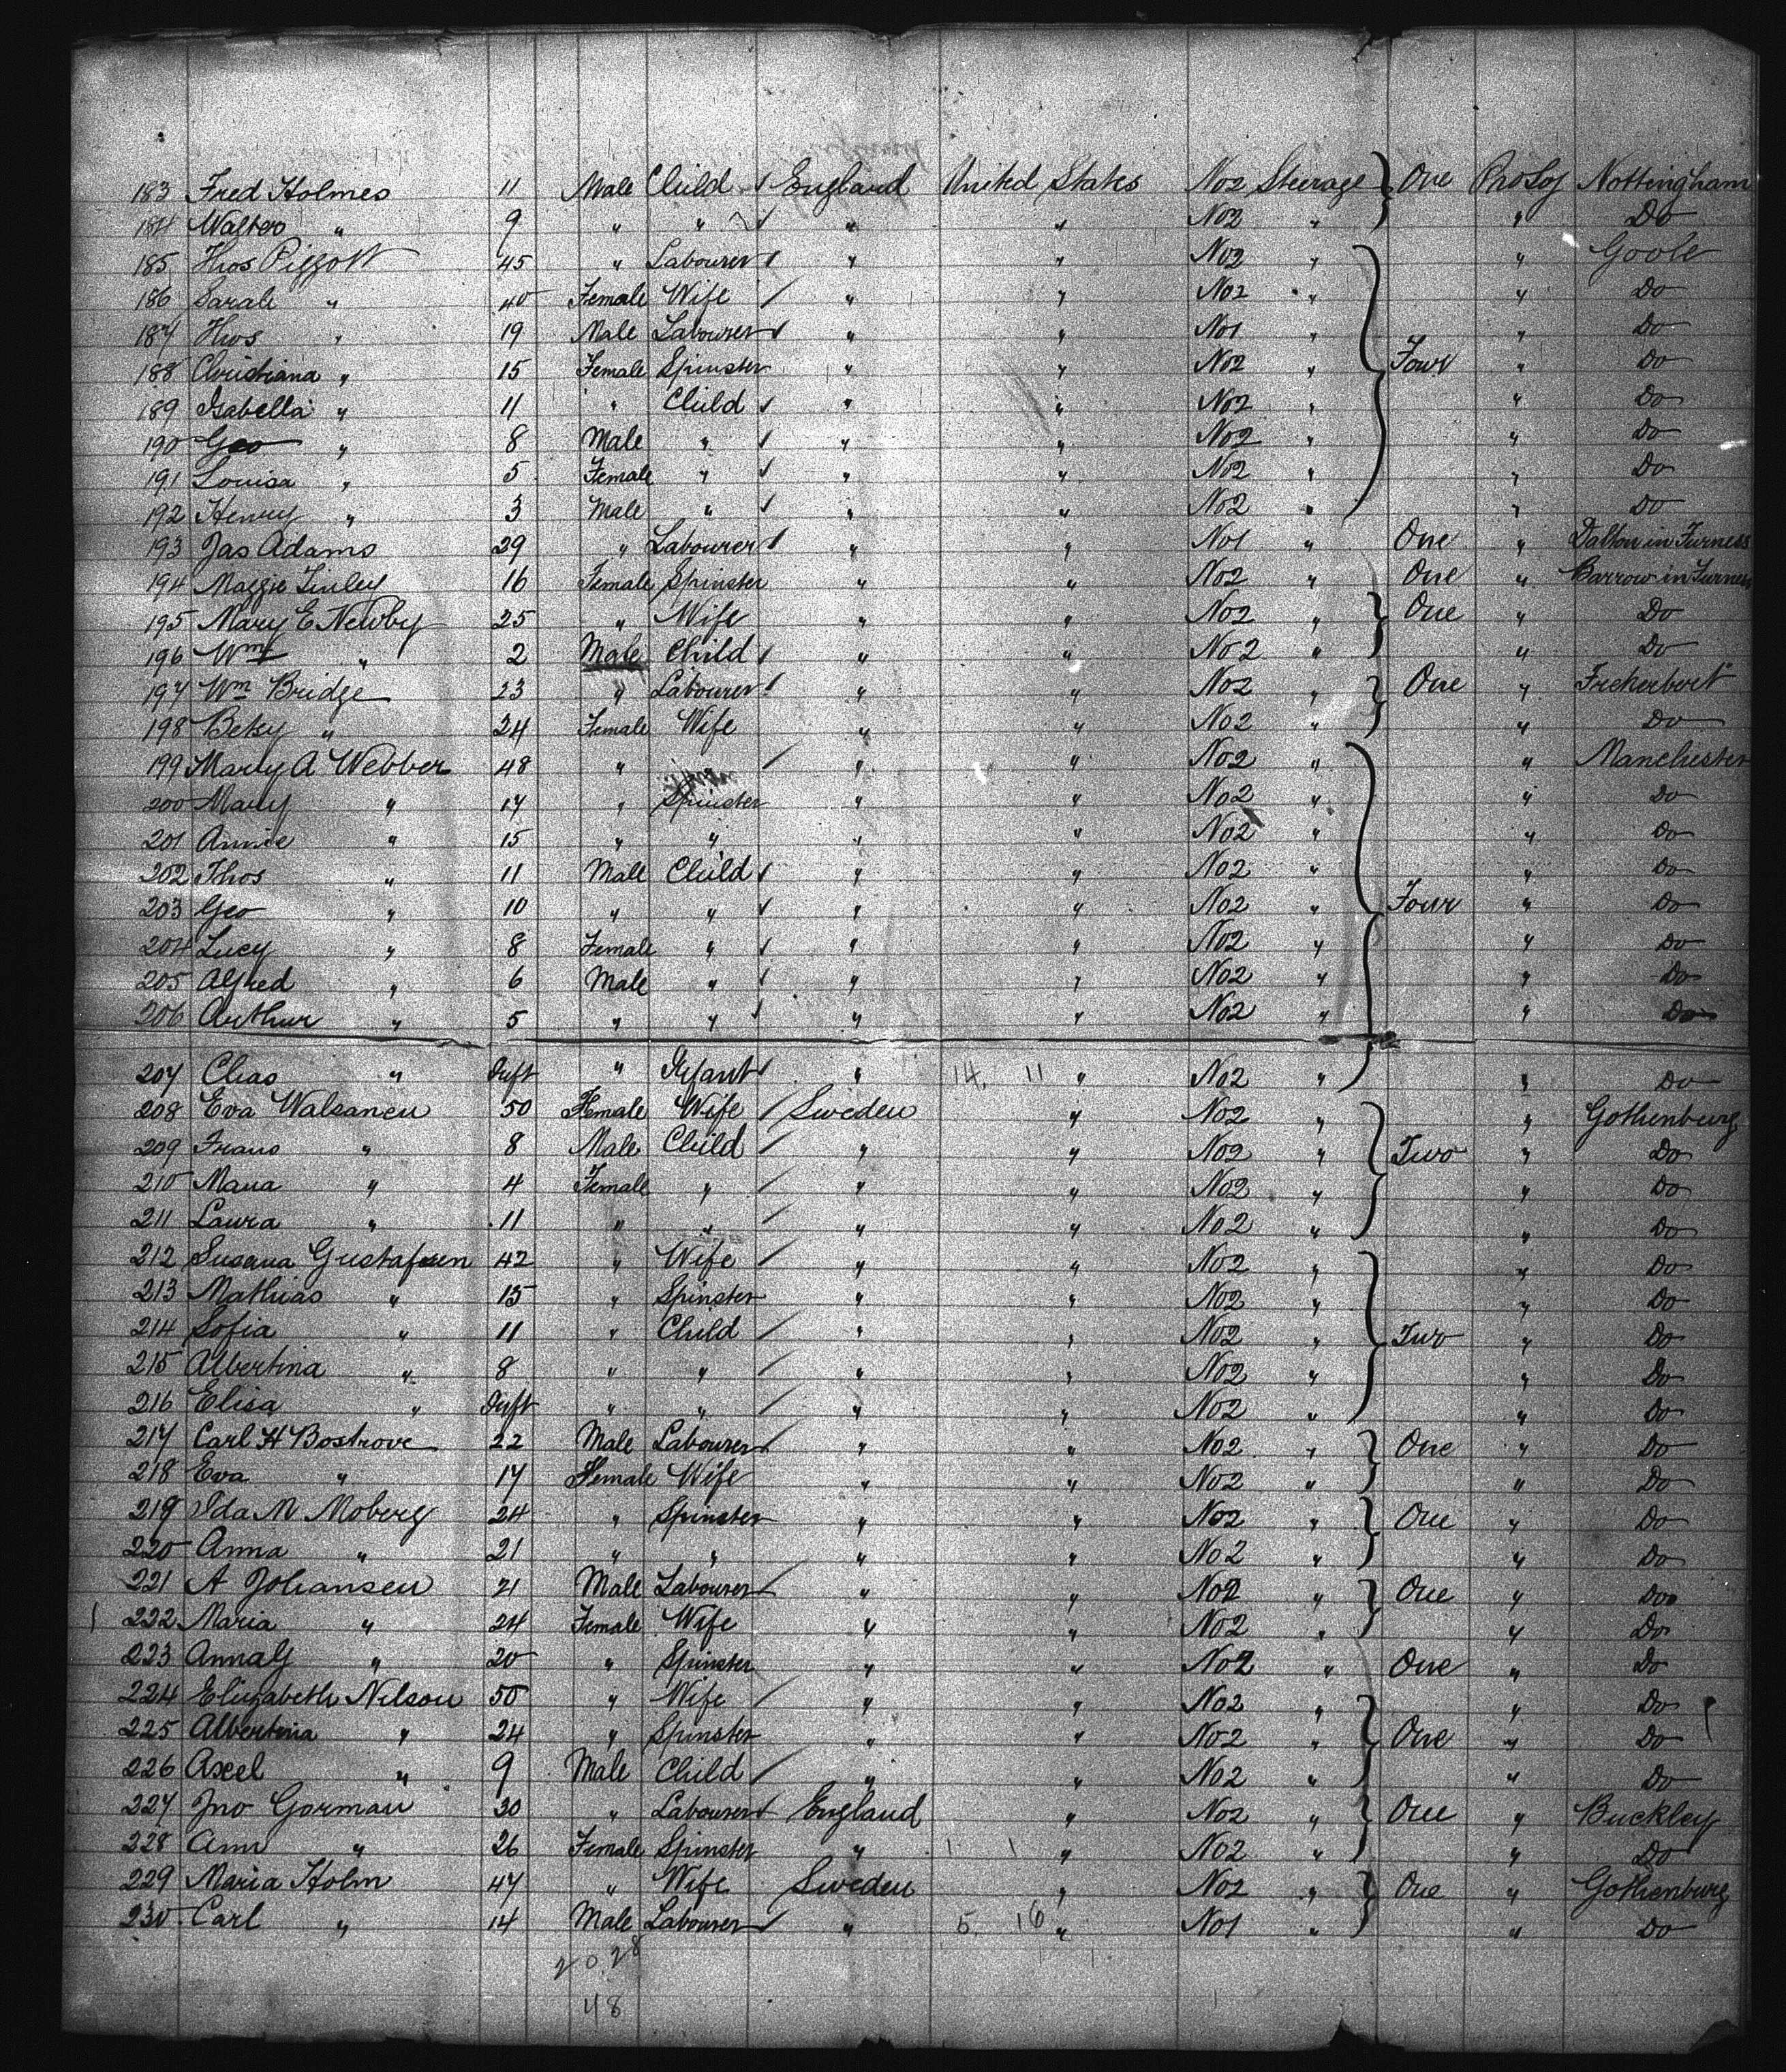 183 Fred Holmes 11 Male Child England United States No2 Steerage One Pro Soj Nottingham
184 Walter " 9 " " " " No2 " " Do
185 Thos Piggott 45 " Labourer " " No2 " " Goole
186 Sarah " 40 Female Wife " " No2 " " Do
187 Thos " 19 Male Labourer " " No1 " " Do
188 Christiana " 15 Female Spinster " " No2 " Four " Do
189 Isabella " 11 " Child " " No2 " " Do
190 Geo " 8 Male " " " No2 " " Do
191 Louisa " 5 Female " " " No2 " " Do
192 Henry " 3 Male " " " No2 " " Do
193 Jas Adams 29 " Labourer " " No1 " One " Dalton in Furness
194 Maggie Finley 16 Female Spinster " " No2 " One " Barrow in Furness
195 Mary E Newby 25 " Wife " " No2 " One " Do
196 Wm " 2 Male Child " " No2 " " Do
197 Wm Bridge 23 " Labourer " " No2 " One "
198 Betsy " 24 Female Wife " " No2 " " Do
199 Mary A Webber 48 " " " " No2 " " Manchester
200 Mary " 17 " Spinster " " No2 " " Do
201 Annie " 15 " " " " No2 " " Do
202 Thos " 11 Male Child " " No2 " " Do
203 Geo " 10 " " " " No2 " Four " Do
204 Lucy " 8 Female " " " No2 " " Do
205 Alfred " 6 Male " " " No2 " " Do
206 Arthur " 5 " " " " No2 " " Do
207 Chas " Inft " Infant " 14. 11 " No2 " " Do
208 Eva Walsanen 50 Female Wife Sweden " No2 " " Gothenburg
209 Frans " 8 Male Child " " No2 " Two " Do
210 Maria " 4 Female " " " No2 " " Do
211 Laura " 11 " " " " No2 " " Do
212 Susana Gustafsen 42 " Wife " " No2 " " Do
213 Mathias " 15 " Spinster " " No2 " " Do
214 Sofia " 11 " Child " " No2 " Two " Do
215 Albertina " 8 " " " " No2 " " Do
216 Elisa " Inft " " " " No2 " " Do
217 Carl H Bostrove 22 Male Labourer " " No2 " One " Do
218 Eva " 17 Female Wife " " No2 " " Do
219 Ida M Moberg 24 " Spinster " " No2 " One " Do
220 Anna " 21 " " " " No2 " " Do
221 A Johansen 21 Male Labourer " " No2 " One " Do
222 Maria " 24 Female Wife " " No2 " " Do
223 Anna G " 20 " Spinster " " No2 " One " Do
224 Elizabeth Nilson 50 " Wife " " No2 " " Do
225 Albertina " 24 " Spinster " " No2 " One " Do
226 Axel " 9 Male Child " " No2 " " Do
227 Jno Gorman 30 " Labourer England " No2 " One " Buckley
228 Ann " 26 Female Spinster " 1 1 " No2 " " Do
229 Maria Holm 47 " Wife Sweden " No2 " One " Gothenburg
230 Carl " 14 Male Labourer " 5. 16 " No1 " " Do
20.28
48